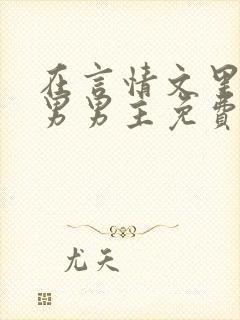 在言情文里
男男主免費
尤天